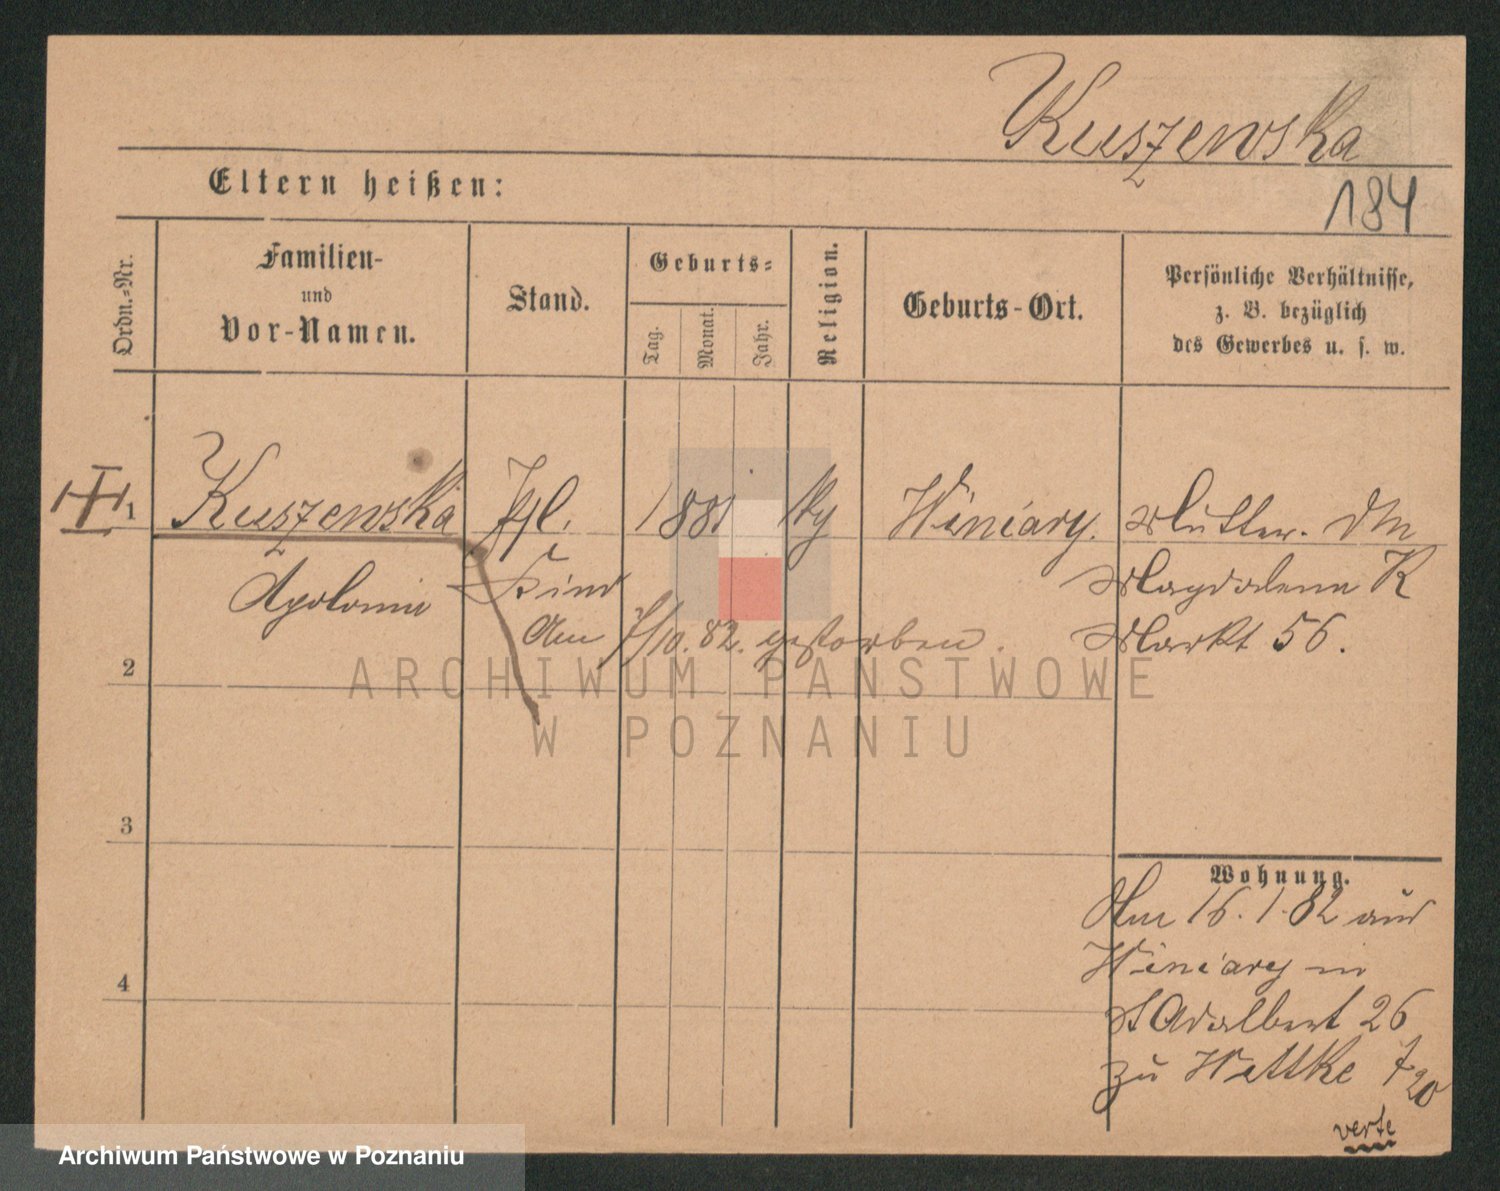 Kuszewska
184
Eltern heißen:
Ordn.-Nr.
Familien-
und
Vor-Namen.
Stand.
Geburts-
Tag.
Monat.
Jahr.
Religion.
Geburts-Ort.
Persönliche Verhältnisse,
z. B. bezüglich
des Gewerbes u. s. w.
1
Kuszewska
Apolonia
Pfl.
Kind
1881
Winiary.
Mutter. DM
Magdalena K
Markt 56.
Am 7/10.82. gestorben.
2
3
4
Wohnung.
Am 16.1.82 aus
Winiary in
St Adalbert 26
zu Wittke
verte
ARCHIWUM PAŃSTWOWE
W POZNANIU
Archiwum Państwowe w Poznaniu